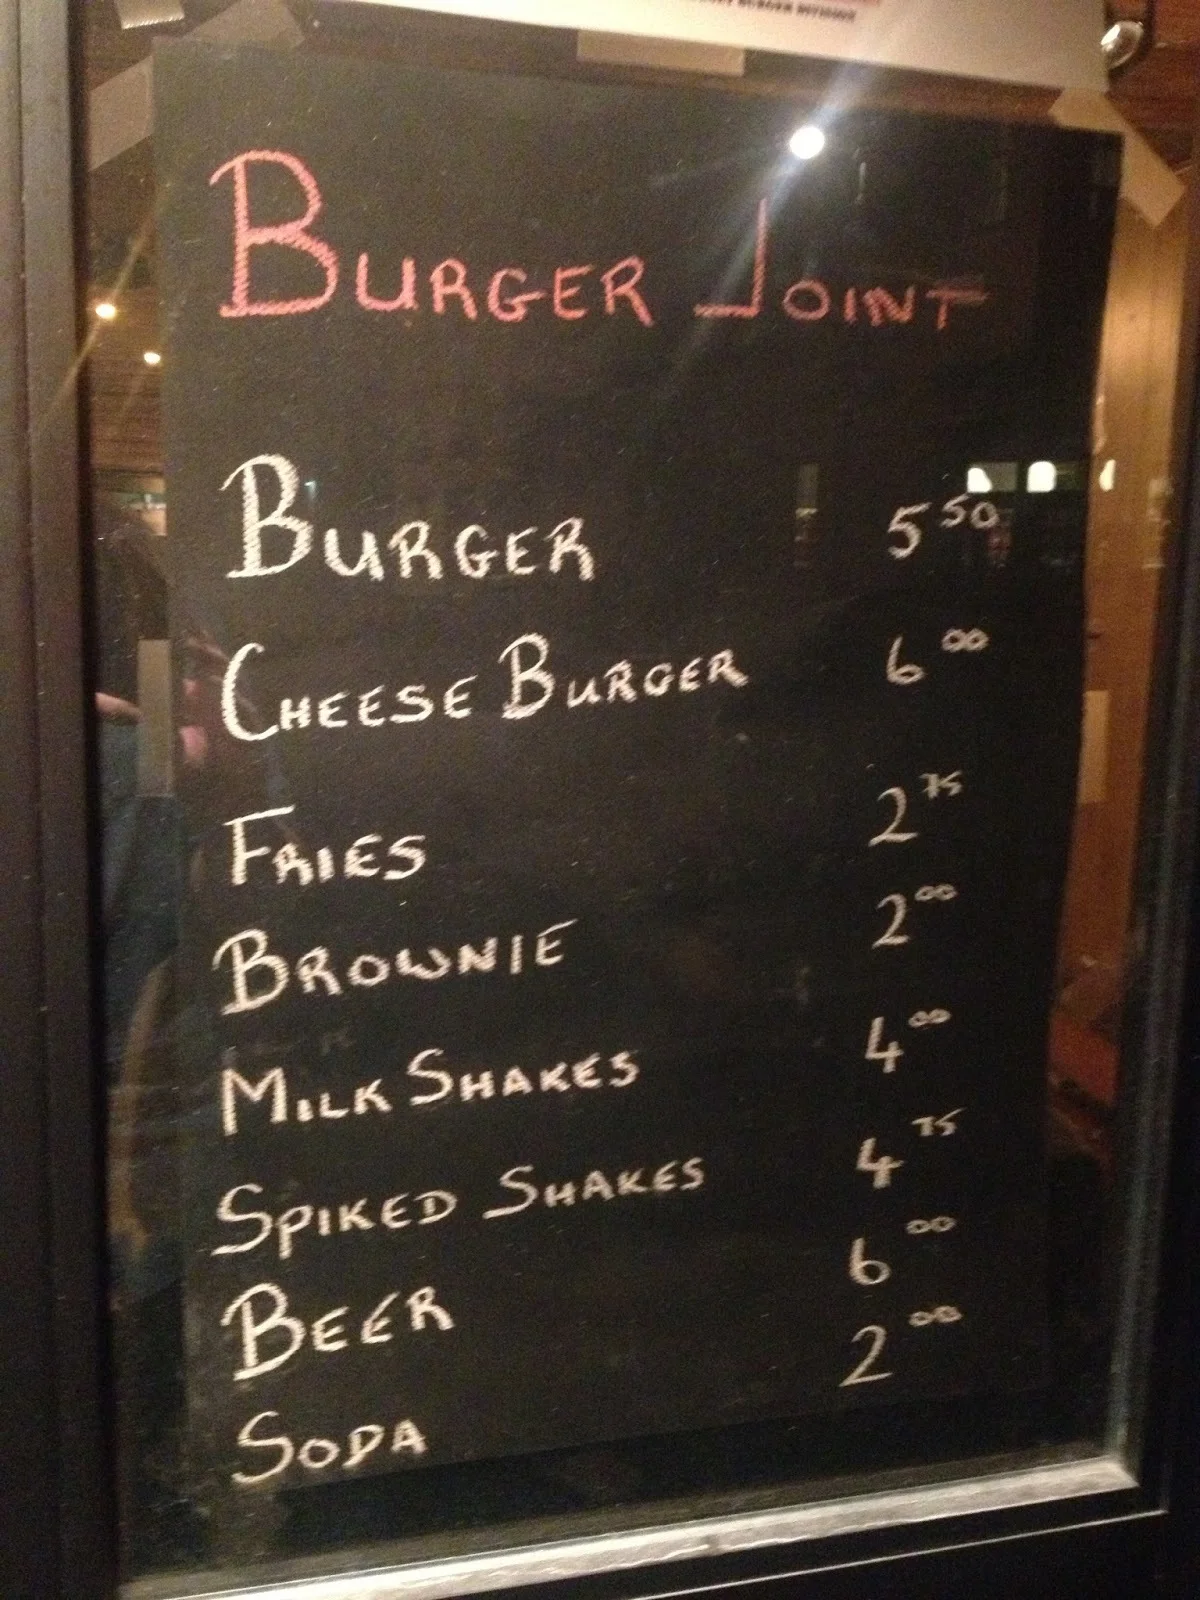 BURGER JOINT
BURGER 5 50
CHEESE BURGER 6 00
FRIES 2 75
BROWNIE 2 00
MILK SHAKES 4 00
SPIKED SHAKES 4 75
BEER 6 00
SODA 2 00